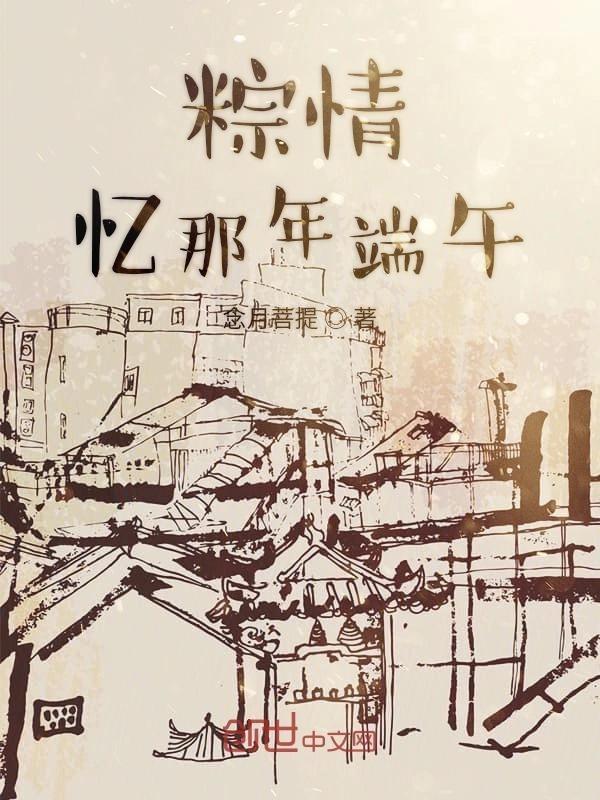 粽情
忆那年端午
念月菩提◎著
创世中文网